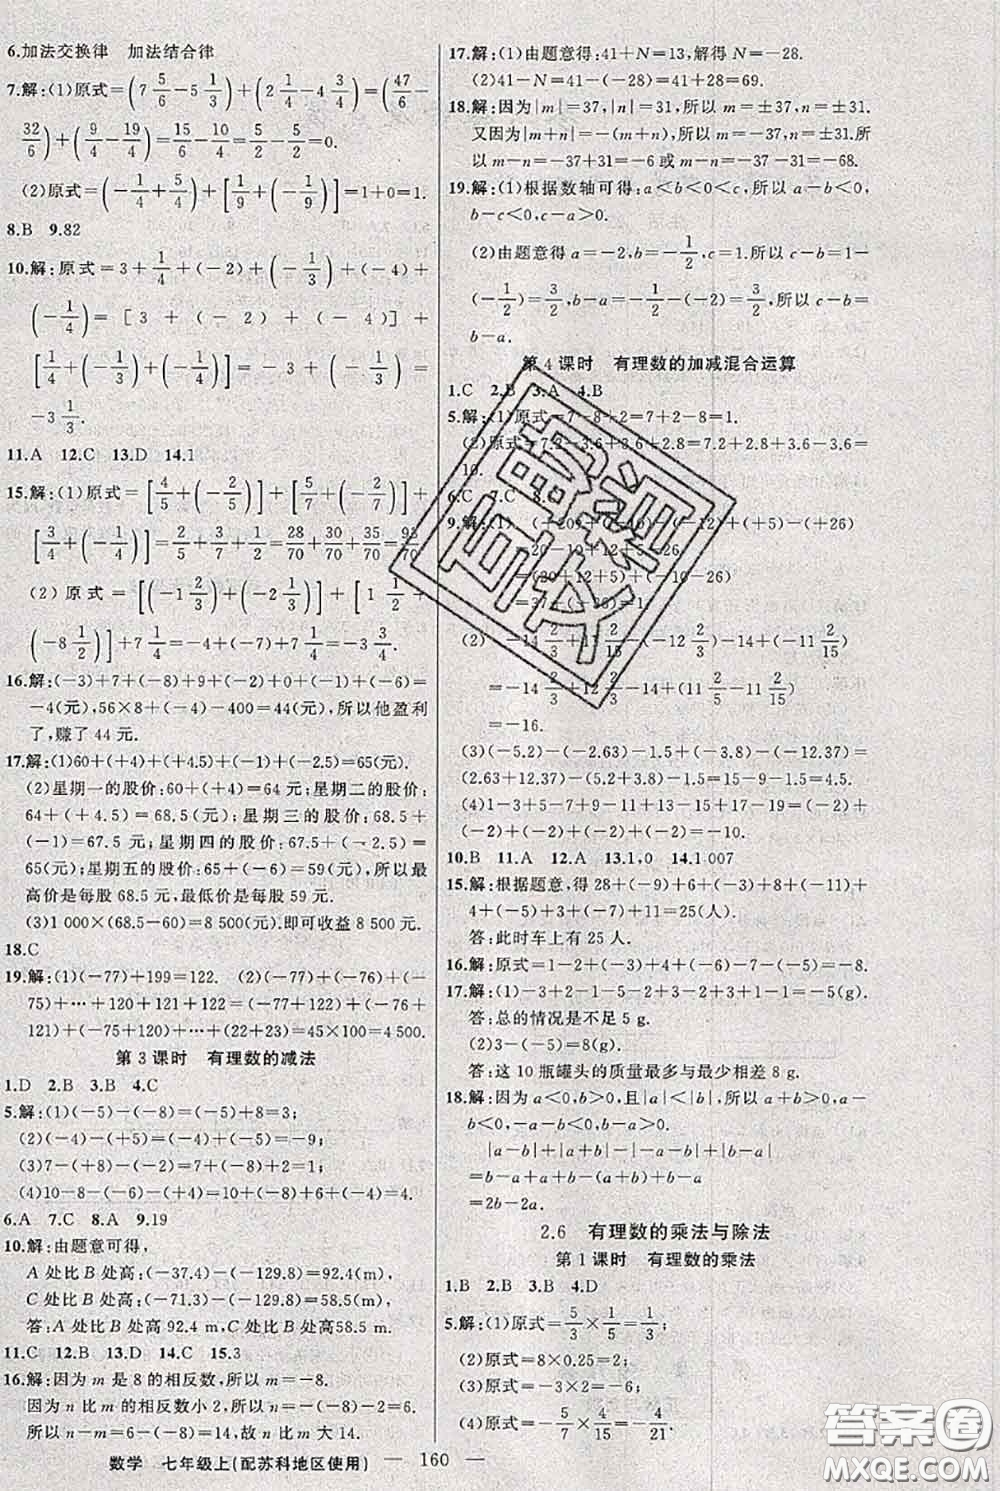 6.加法交换律 加法结合律
7.解:(1)原式=(7 5/6-5 1/3)+(2 1/4-4 3/4)=(47/6-
32/6)+(9/4-19/4)=15/6-10/4=5/2-5/2=0.
(2)原式=(-1/4+5/4)+[1/9+(-1/9)]=1+0=1.
8.B 9.82
10.解:原式=3+1/4+(-2)+(-1/3)+(-4)+
(-1/4)=[3+(-2)+(-4)]+
[1/4+(-1/3)+(-1/4)]=-3+(-1/3)=
-3 1/3.
11.A 12.C 13.D 14.1
15.解:(1)原式=[4/5+(-2/5)]+[5/7+(-2/7)]+
[3/4+(-1/4)]=2/5+3/7+1/2=28/70+30/70+35/70=93/70
(2)原式=[(-1 2/3)+(-2 1/3)]+[1 1/2+
(-8 1/2)]+7 1/4=-4+(-7)+7 1/4=-3 3/4.
16.解:(-3)+7+(-8)+9+(-2)+0+(-1)+(-6)=
-4(元),56×8+(-4)-400=44(元),所以他盈利
了,赚了44元.
17.解:(1)60+(+4)+(+4.5)+(-1)+(-2.5)=65(元).
(2)星期一的股价:60+(+4)=64元,星期二的股价:
64+(+4.5)=68.5(元);星期三的股价:68.5+
(-1)=67.5元;星期四的股价:67.5+(-2.5)=
65(元);星期五的股价:65+(-6)=59(元),所以最
高价是每股68.5元,最低价是每股59元.
(3)1 000×(68.5-60)=8 500(元).即可收益8 500元.
18.C
19.解:(1)(-77)+199=122. (2)(-77)+(-76)+(-
75)+…+120+121+122=(-77+122)+(-76+
121)+(-75+120)+…+(22+23)=45×100=4 500.
第3课时 有理数的减法
1.D 2.B 3.B 4.C
5.解:(1)(-5)-(-8)=(-5)+8=3;
(2)(-4)-(+5)=(-4)+(-5)=-9;
(3)7-(+8)=7+(-8)=-1;
(4)10-8-(-6)-(+4)=10+(-8)+6+(-4)=4.
6.A 7.C 8.A 9.19
10.解:由题意可得,
A处比B处高:(-37.4)-(-129.8)=92.4(m),
C处比B处高:(-71.3)-(-129.8)=58.5(m),
答:A处比B处高92.4 m,C处比B处高58.5 m.
11.C 12.B 13.D 14.C 15.3
16.解:因为m是8的相反数,所以m=-8.
因为n比m的相反数小2,所以n=8-2=6.
所以n-m=6-(-8)=14,所以n比m大14.
17.解:(1)由题意得:41+N=13,解得N=-28.
(2)41-N=41-(-28)=41+28=69.
18.解:因为|m|=37,|n|=31,所以m=±37,n=±31.
又因为|m+n|=-(m+n),所以m=-37,n=±31.所
以m-n=-37+31=-6或m-n=-37-31=-68.
19.解:(1)根据数轴可得:a<b<0<c,所以a-b<0,
b-c<0,c-a>0.
(2)由题意得a=-2,b=-1/2,c=1.所以c-b=1-
(-1/2)=3/2,b-a=-1/2-(-2)=3/2,所以c-b=
b-a.
第4课时 有理数的加减混合运算
1.C 2.B 3.A 4.B
5.解:(1)原式=7-8+2=7+2-8=1.
(2)原式=7.2-3.6+3.6+2.8=7.2+2.8+3.6-3.6=
10.
6.C 7.C 8.
9.解:(1) (+20)+(-10)-(-12)+(+5)-(+26)
=20-10+12+5-26
=(20+12+5)+(-10-26)
=37+(-36)=1.
(2) -14 2/3+12 2/5-(-12 2/3)-14+(-11 2/15)
=-14 2/3+12 2/3-14+(11 2/5-11 2/15)
=-16.
(3)(-5.2)-(-2.63)-1.5+(-3.8)-(-12.37)=
(2.63+12.37)-(5.2+3.8)-1.5=4.5.
(4)1-3+5-7+9-11+13-15=(-2)+(-2)+
(-2)+(-2)=-8.
10.B 11.A 12.A 13.1,0 14.1 007
15.解:根据题意,得28+(-9)+6+(-3)+8+(-11)+
4+(-5)+(-4)+11=25(人).
答:此时车上有25人.
16.解:原式=1-2+(-3)-(-4)+(-6)-7-(-5)=-8.
17.解:(1)-3+2-1-5-2+3-2+3+1-1=-5(g).
答:总的情况是不足5 g.
(2)3-(-5)=8(g).
答:这10瓶罐头的质量最多与最少相差8 g.
18.解:因为a<0,b>0,且|a|<|b|,所以a-b<0,a+
b>0,b-a>0.所以
|a-b|+|a+b|+|b-a|
=b-a+a+b+b-a
=2b-2a.
2.6 有理数的乘法与除法
第1课时 有理数的乘法
1.B 2.B 3.B 4.D
5.解:(1)原式=5/3×1/5=1/3;
(2)原式=8×0.25=2;
(3)原式=-3×2=-6;
(4)原式=-5/7×4/15=-4/21.
数学 七年级上(配苏科地区使用) — 160 —
答案圈